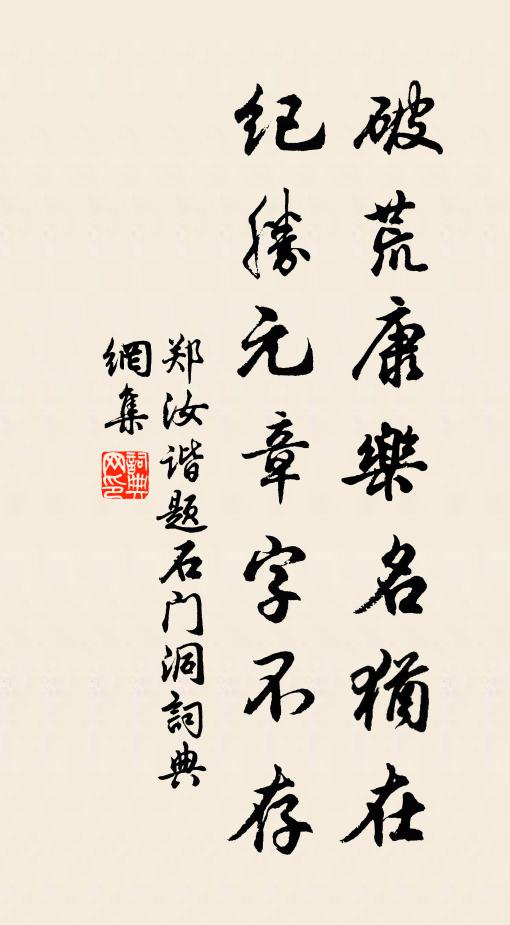 破荒康樂名猶在
紀勝元章字不存
郑汝谐题石门洞詞典
網集
詞典网印